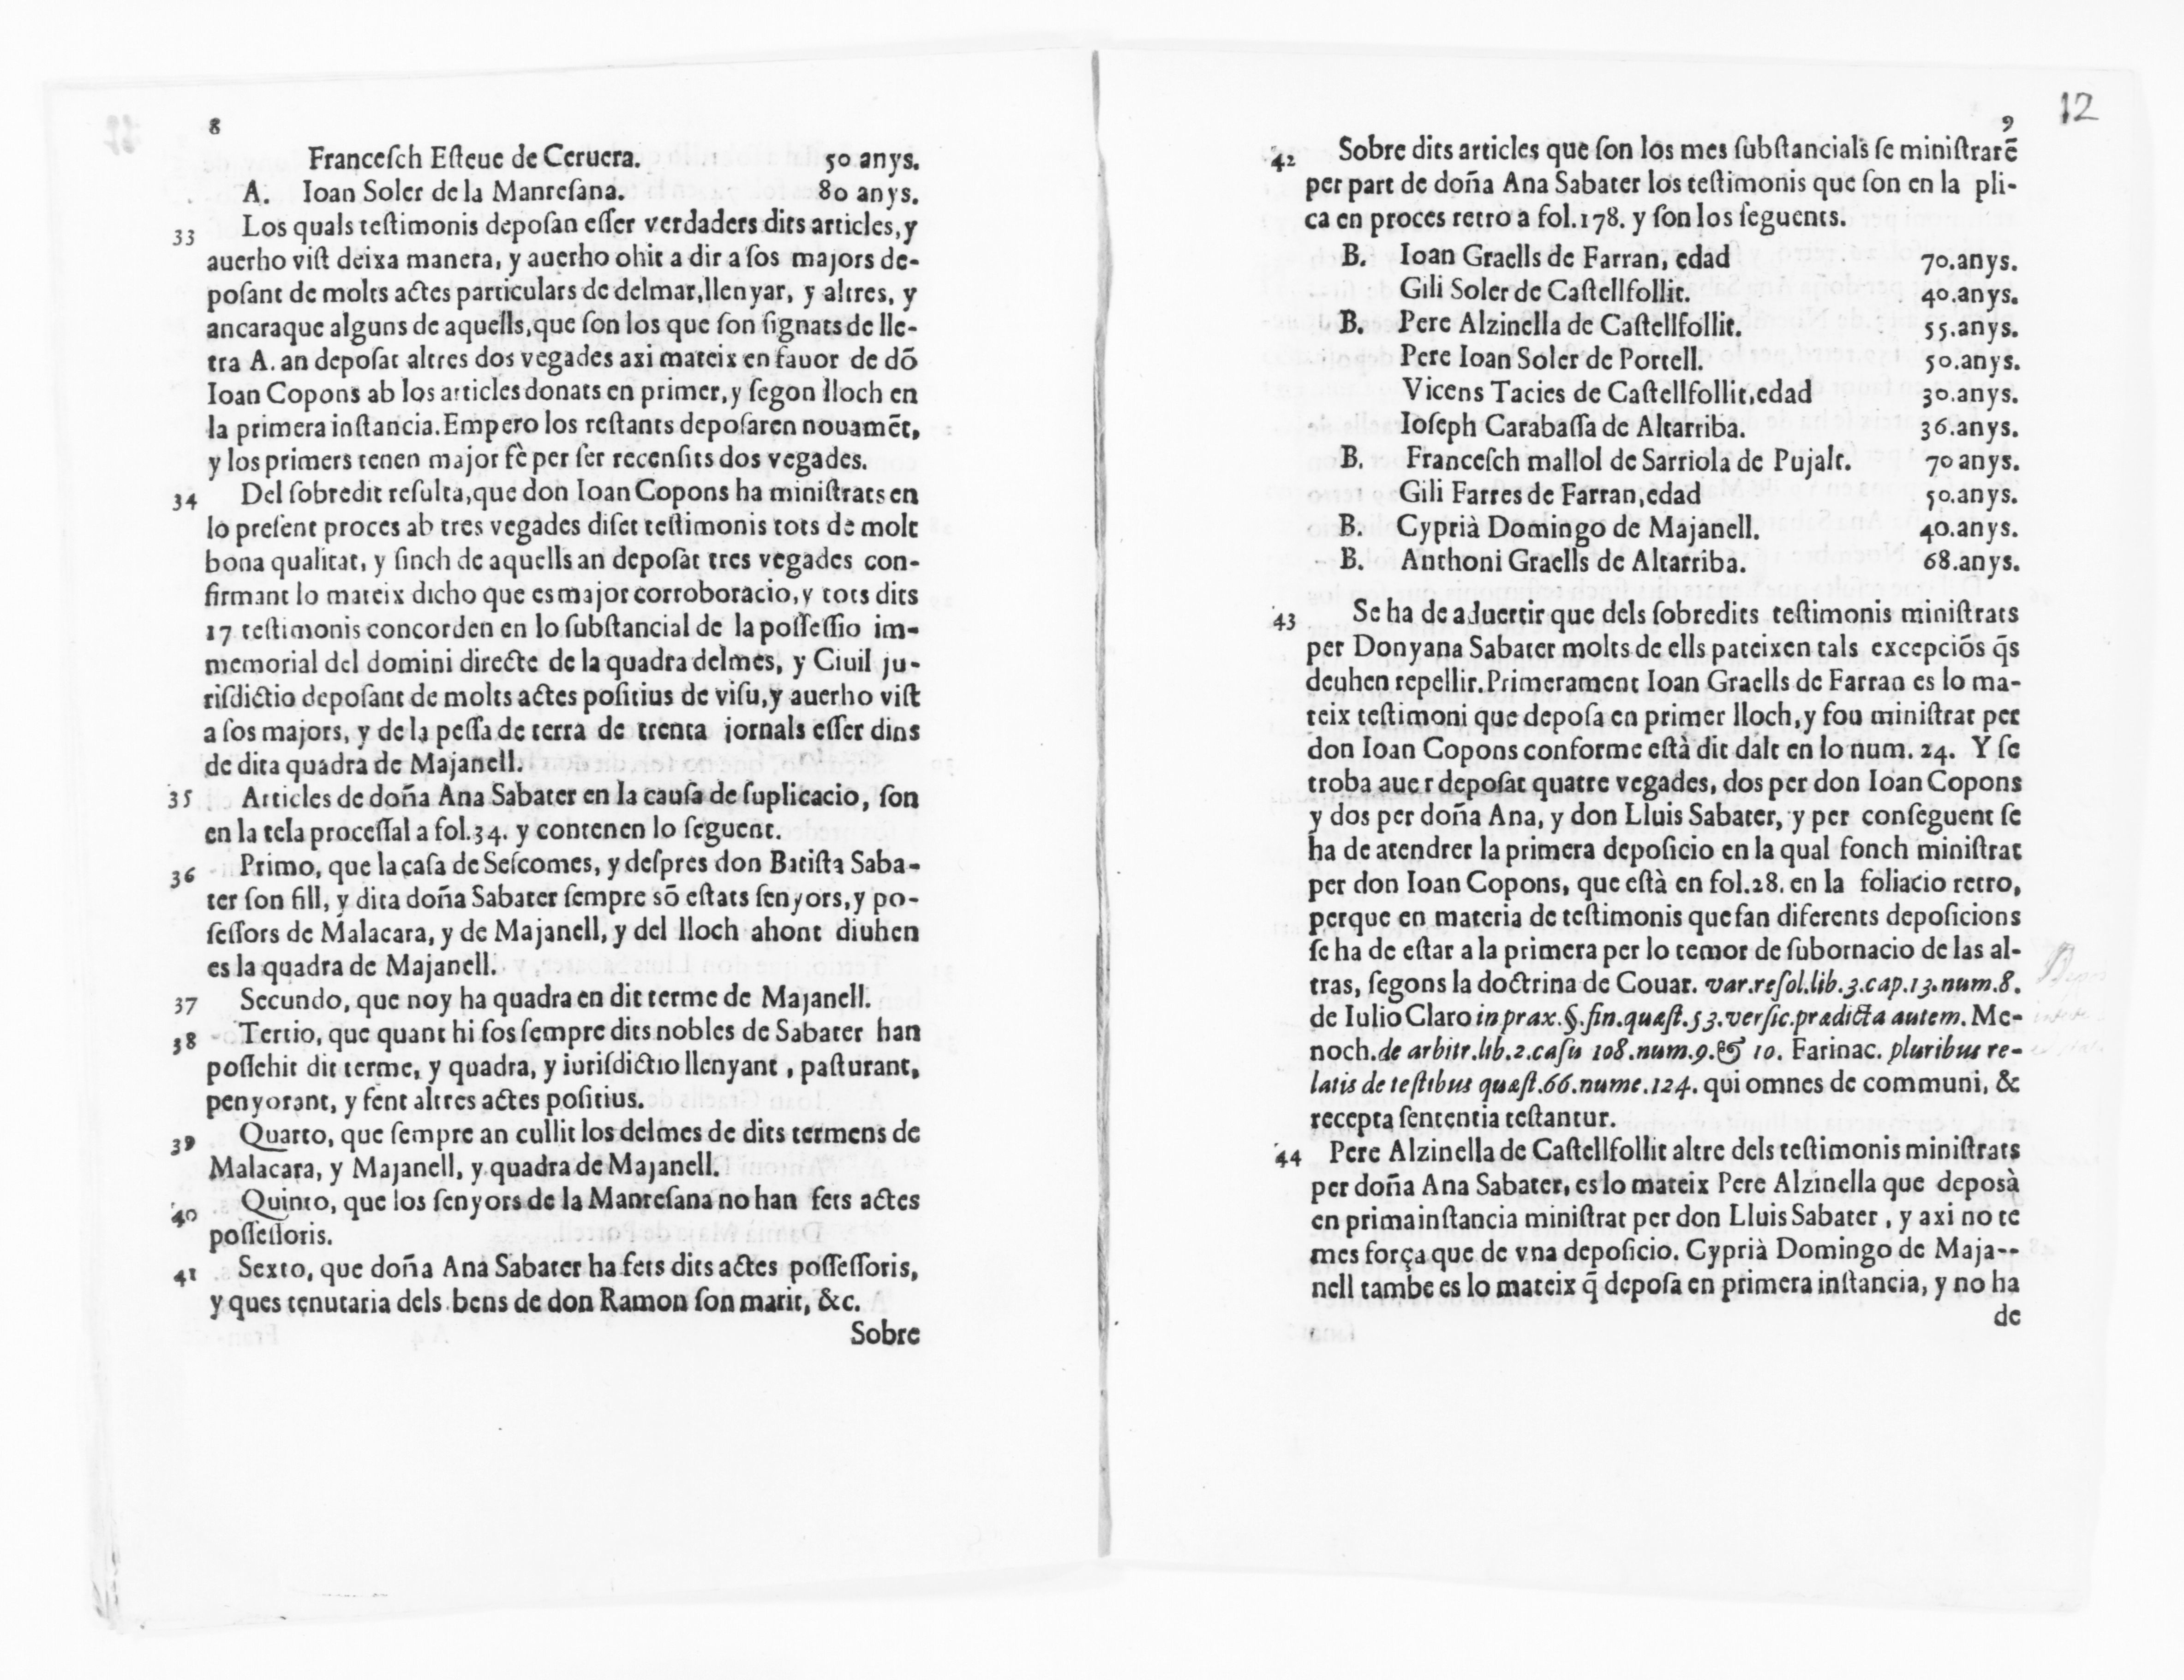 8
Franceſch Eſteue de Ceruera. 50 anys.
A. Ioan Soler de la Manreſana. 80 anys.
33 Los quals teſtimonis depoſan eſſer verdaders dits articles,y
auerho viſt deixa manera, y auerho ohit a dir a ſos majors de-
poſant de molts actes particulars de delmar,llenyar, y altres, y
ancaraque alguns de aquells,que ſon los que ſon ſignats de lle-
tra A. an depoſat altres dos vegades axi mateix en fauor de dõ
Ioan Copons ab los articles donats en primer,y ſegon lloch en
la primera inſtancia.Empero los reſtants depoſaren nouamẽt,
y los primers tenen major fè per ſer recenſits dos vegades.
34 Del ſobredit reſulta,que don Ioan Copons ha miniſtrats en
lo preſent proces ab tres vegades diſet teſtimonis tots de molt
bona qualitat, y ſinch de aquells an depoſat tres vegades con-
firmant lo mateix dicho que es major corroboracio,y tots dits
17 teſtimonis concorden en lo ſubſtancial de la poſſeſſio im-
memorial del domini directe de la quadra delmes, y Ciuil ju-
riſdictio depoſant de molts actes poſitius de viſu,y auerho viſt
a ſos majors, y de la peſſa de terra de trenta jornals eſſer dins
de dita quadra de Majanell.
35 Articles de doña Ana Sabater en la cauſa de ſuplicacio, ſon
en la tela proceſſal a fol.34. y contenen lo ſeguent.
36 Primo, que la caſa de Seſcomes, y deſpres don Batiſta Saba-
ter ſon fill, y dita doña Sabater ſempre sõ eſtats ſenyors,y po-
ſeſſors de Malacara, y de Majanell, y del lloch ahont diuhen
es la quadra de Majanell.
37 Secundo, que noy ha quadra en dit terme de Majanell.
38 Tertio, que quant hi fos ſempre dits nobles de Sabater han
poſſehit dit terme, y quadra, y iuriſdictio llenyant , paſturant,
penyorant, y fent altres actes poſitius.
39 Quarto, que ſempre an cullit los delmes de dits termens de
Malacara, y Majanell, y quadra de Majanell.
40 Quinto, que los ſenyors de la Manreſana no han fets actes
poſſeſſoris.
41 Sexto, que doña Ana Sabater ha fets dits actes poſſeſſoris,
y ques tenutaria dels bens de don Ramon ſon marit, &c.
Sobre
12
9
42 Sobre dits articles que ſon los mes ſubſtancials ſe miniſtrarẽ
per part de doña Ana Sabater los teſtimonis que ſon en la pli-
ca en proces retro a fol.178. y ſon los ſeguents.
B. Ioan Graells de Farran, edad 70.anys.
Gili Soler de Caſtellfollit. 40.anys.
B. Pere Alzinella de Caſtellfollit. 55.anys.
Pere Ioan Soler de Portell. 50.anys.
Vicens Tacies de Caſtellfollit,edad 30.anys.
Ioſeph Carabaſſa de Altarriba. 36.anys.
B. Franceſch mallol de Sarriola de Pujalt. 70 anys.
Gili Farres de Farran,edad 50.anys.
B. Cyprià Domingo de Majanell. 40.anys.
B. Anthoni Graells de Altarriba. 68.anys.
43 Se ha de aduertir que dels ſobredits teſtimonis miniſtrats
per Donyana Sabater molts de ells pateixen tals excepciõs q̃s
deuhen repellir.Primerament Ioan Graells de Farran es lo ma-
teix teſtimoni que depoſa en primer lloch,y fou miniſtrat per
don Ioan Copons conforme eſtà dit dalt en lo num. 24. Y ſe
troba auer depoſat quatre vegades, dos per don Ioan Copons
y dos per doña Ana, y don Lluis Sabater, y per conſeguent ſe
ha de atendrer la primera depoſicio en la qual fonch miniſtrat
per don Ioan Copons, que eſtà en fol.28. en la foliacio retro,
perque en materia de teſtimonis que fan diferents depoſicions
ſe ha de eſtar a la primera per lo temor de ſubornacio de las al-
tras, ſegons la doctrina de Couar. var.reſol.lib.3.cap.13.num.8.
de Iulio Claro in prax.§.fin.quæſt.53.verſic.prædicta autem. Me-
noch.de arbitr.lib.2.caſu 108.num.9.& 10. Farinac. pluribus re-
latis de teſtibus quæſt.66.nume.124. qui omnes de communi, &
recepta ſententia teſtantur.
44 Pere Alzinella de Caſtellfollit altre dels teſtimonis miniſtrats
per doña Ana Sabater, es lo mateix Pere Alzinella que deposà
en prima inſtancia miniſtrat per don Lluis Sabater , y axi no te
mes força que de vna depoſicio. Cyprià Domingo de Maja--
nell tambe es lo mateix q̃ depoſa en primera inſtancia, y no ha
de